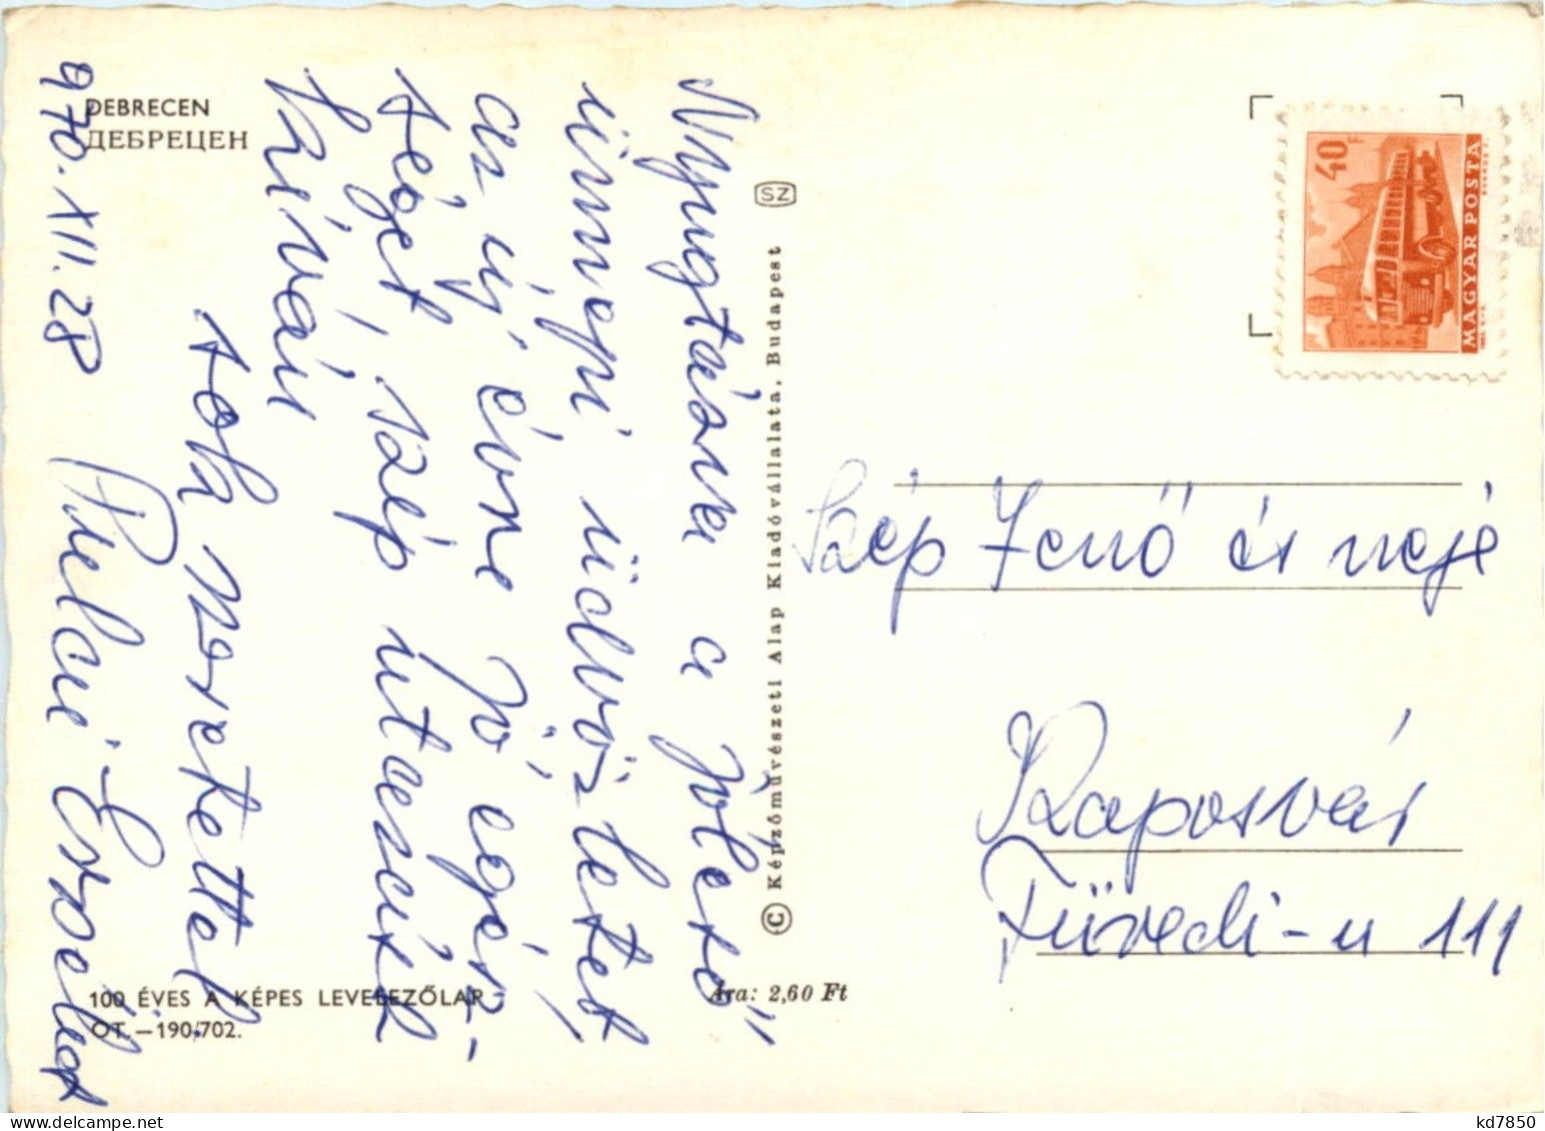 DEBRECEN
ДЕБРЕЦЕН
Nyugtázva a jóleső
ünnepi üdvözletet,
az új évre jó egés-
séget, szép utazást
kíván
sok szeretettel
970. XII. 28 Erzsébet
100 ÉVES A KÉPES LEVELEZŐLAP
ÖT.—190/702.
Ára: 2,60 Ft
© Képzőművészeti Alap Kiadóvállalata, Budapest
SZ
40 F
MAGYAR POSTA
Szép Jenő és neje
Kaposvár
Füredi-u 111
kd7850